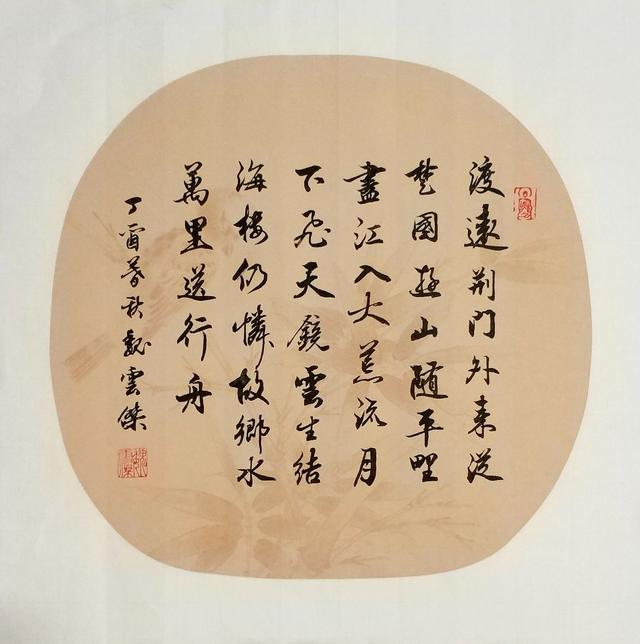 渡遠荆門外来從
楚國遊山随平野
盡江入大荒流月
下飛天鏡雲生結
海楼仍憐故鄉水
萬里送行舟
丁酉暮秋魏雲傑